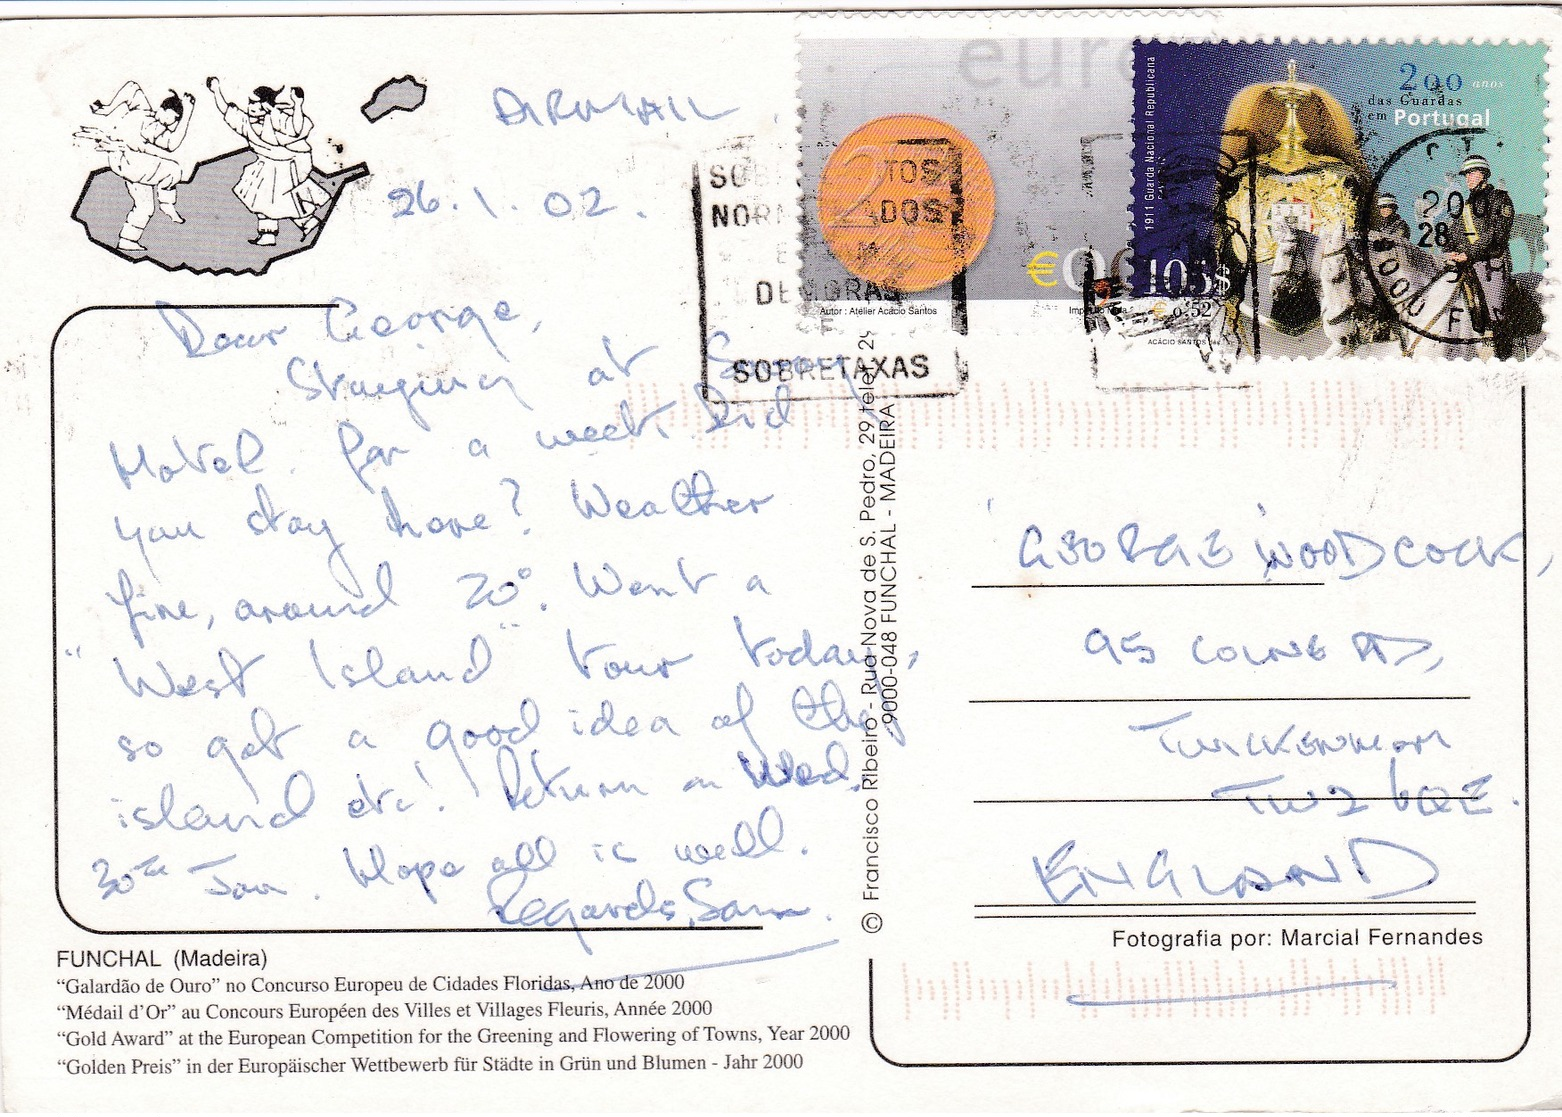 AIRMAIL
26.1.02.
Dear George,
Staying at Savoy
Hotel for a week, did
you stay here? Weather
fine, around 20°. Went a
"West Island" tour today,
so got a good idea of the
island etc! Return on Wed.
30th Jan. Hope all is well.
Regards, Sam.
FUNCHAL (Madeira)
"Galardão de Ouro" no Concurso Europeu de Cidades Floridas, Ano de 2000
"Médail d'Or" au Concours Européen des Villes et Villages Fleuris, Année 2000
"Gold Award" at the European Competition for the Greening and Flowering of Towns, Year 2000
"Golden Preis" in der Europäischer Wettbewerb für Städte in Grün und Blumen - Jahr 2000
© Francisco Ribeiro - Rua Nova de S. Pedro, 29 telef. 2
9000-048 FUNCHAL - MADEIRA
euro
2
€0,
Autor : Atelier Acácio Santos
1911 Guarda Nacional Republicana
200 anos
das Guardas
em Portugal
105$
€ 0.52
ACÁCIO SANTOS
SOB TOS
NOR ADOS
DEMORAS
E
SOBRETAXAS
C T
200
28
9000 FUN
GEORGE WOODCOCK,
95 COLNE RD,
TWICKENHAM
TW2 6QE.
ENGLAND
Fotografia por: Marcial Fernandes